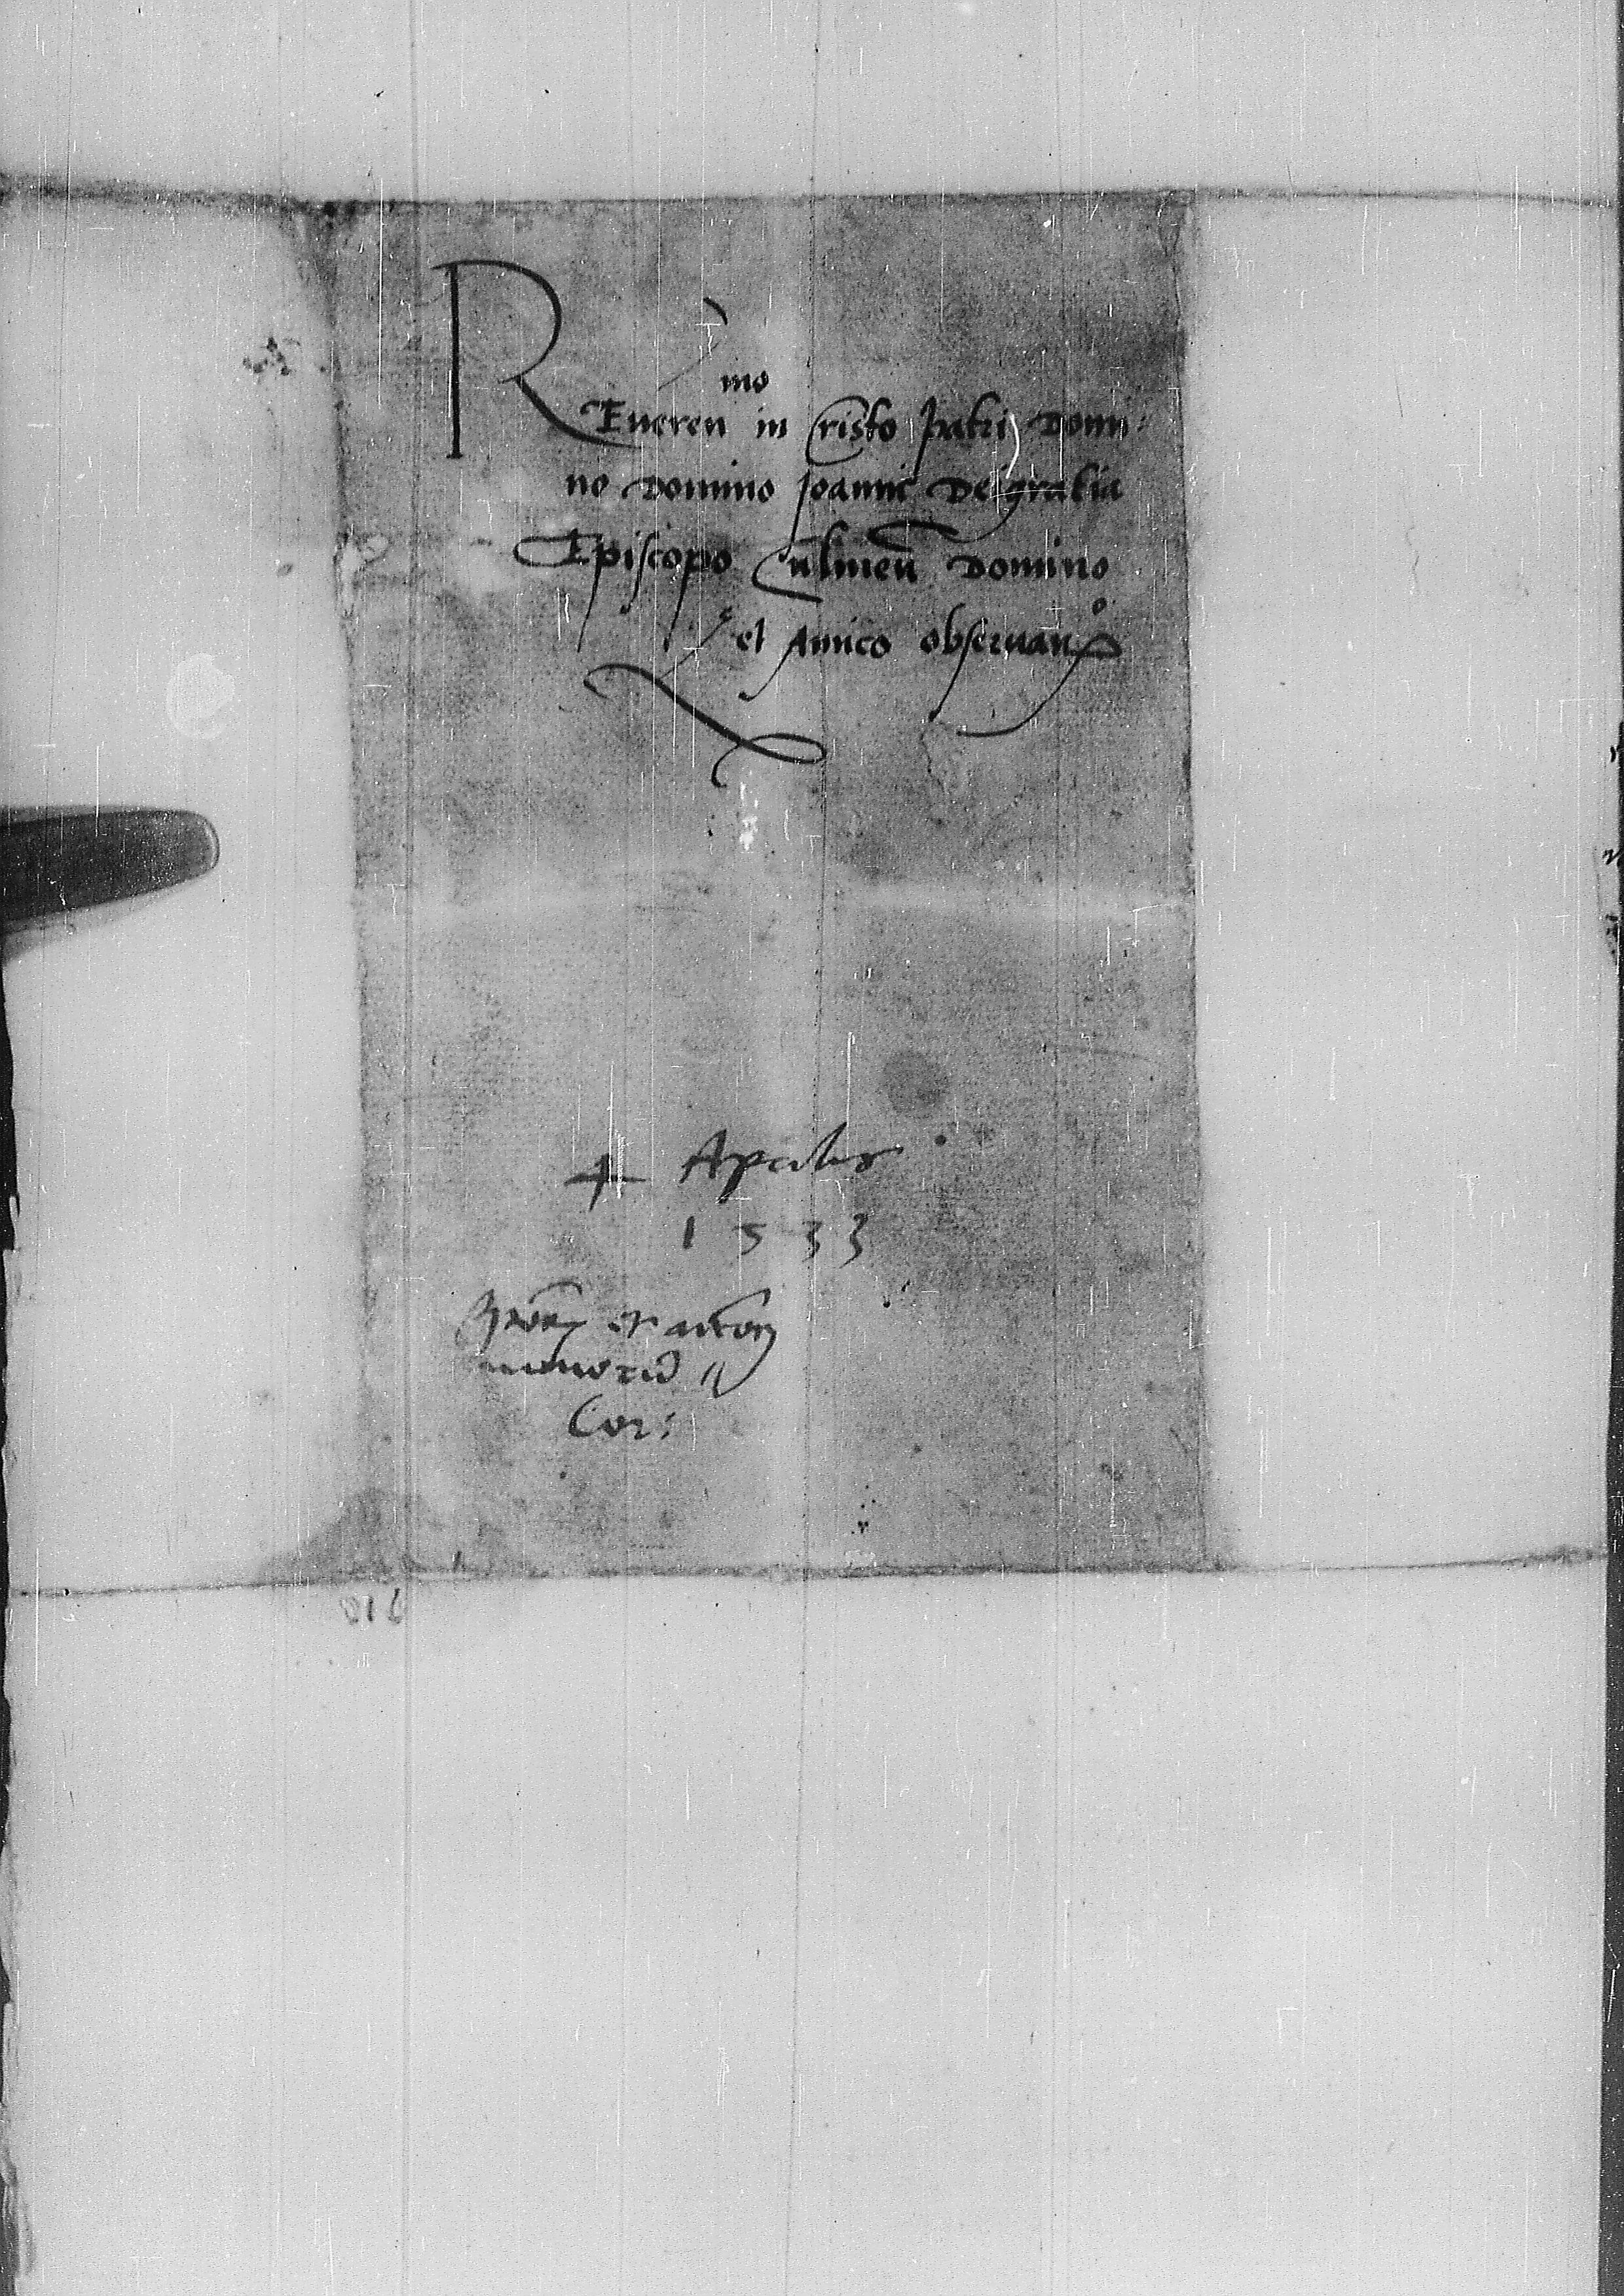 REueren^mo in Cristo patri Domi:
no Domino Joanni Dei gratia
Episcopo Culmen̄ Domino
et Amico obseruan^o
+ Aprilis
1533
Cor: